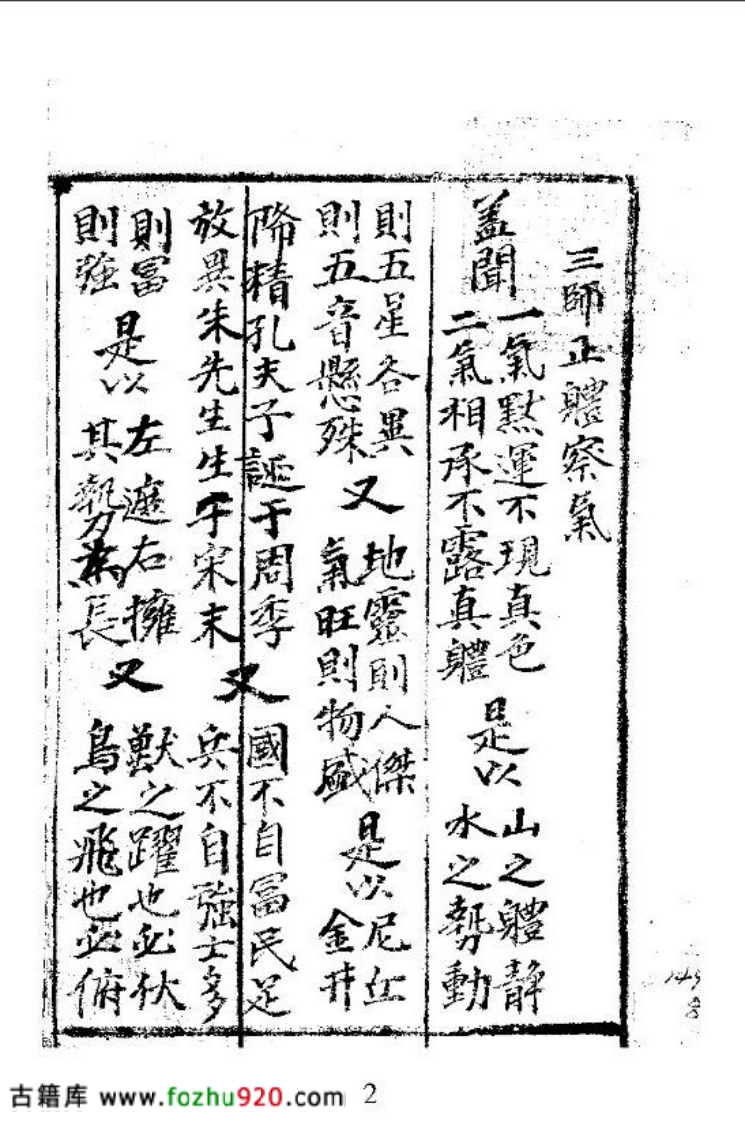 三師正軆察氣
盖聞
一氣默運不現真色
二氣相承不露真軆
是以
山之軆静
水之勢動
則五星各異
則五音懸殊
又
地靈則人傑
氣旺則物盛
是以
尼丘
金井
降精孔夫子誕于周季
放異朱先生生于宋末
又
國不自冨民足
兵不自強士多
則冨
則強
是以
左遮右擁
其勢為長
又
獸之躍也必伏
鳥之飛也必俯
古籍库 www.fozhu920.com 2